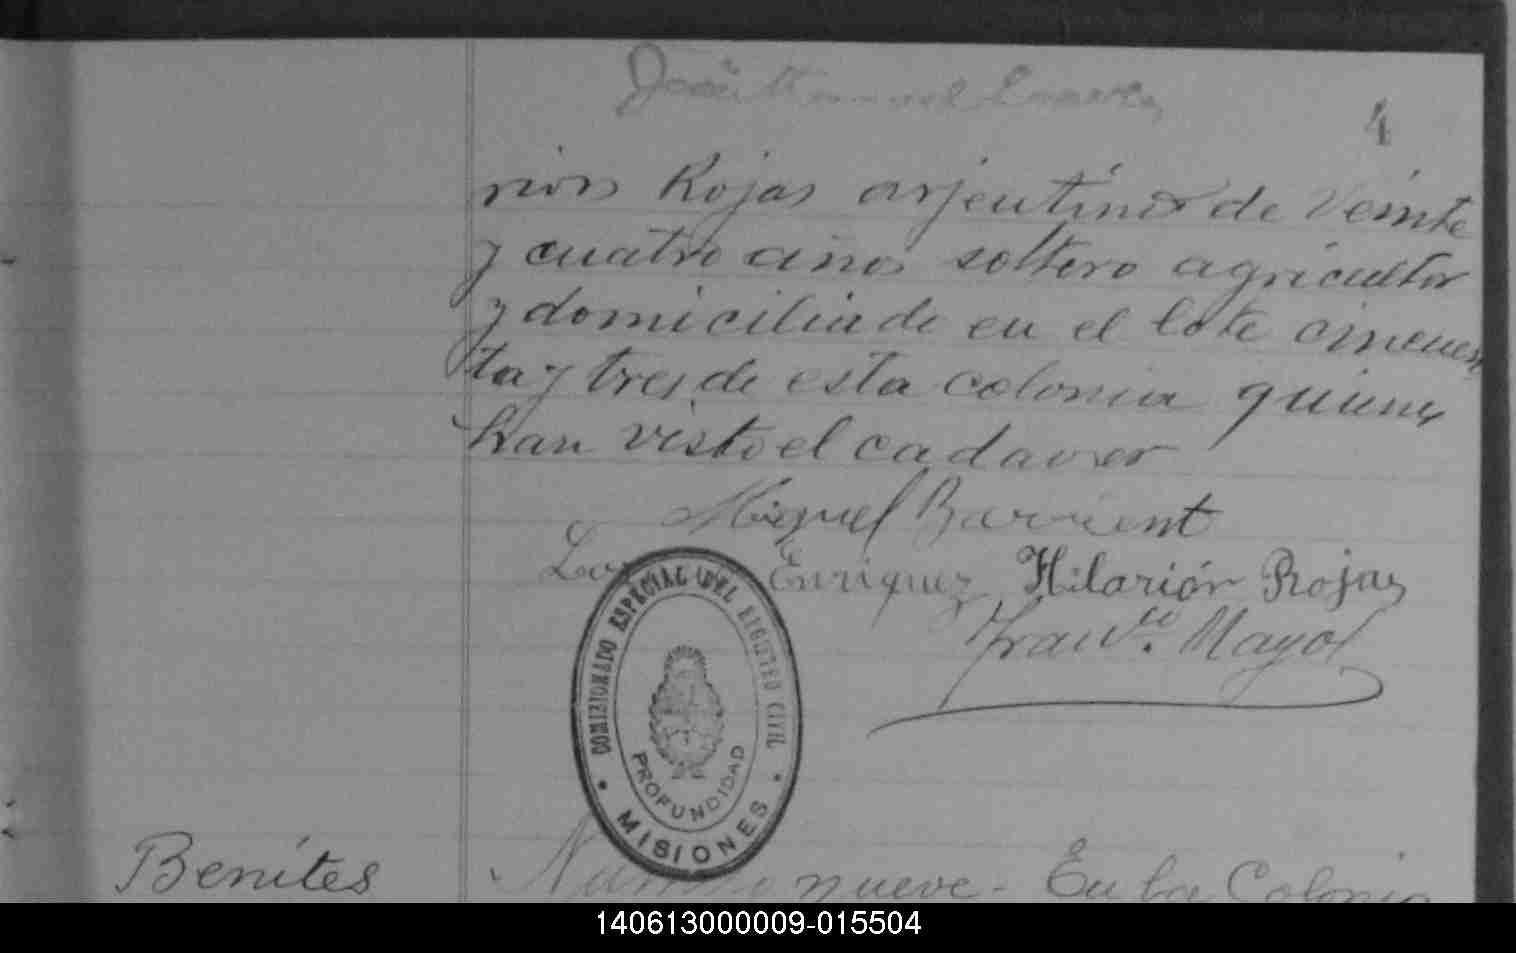 4
rion Rojas arjentino de veinte
y cuatro años soltero agricultor
y domiciliado en el lote cincuen
ta y tres de esta colonia quienes
han visto el cadaver
Miguel Barrient
Enriquez Hilarión Rojas
Franco. Mayol
COMISIONADO ESPECIAL DEL REGISTRO CIVIL
PROFUNDIDAD
MISIONES
Benites
Numero nueve - En la Colonia
140613000009-015504